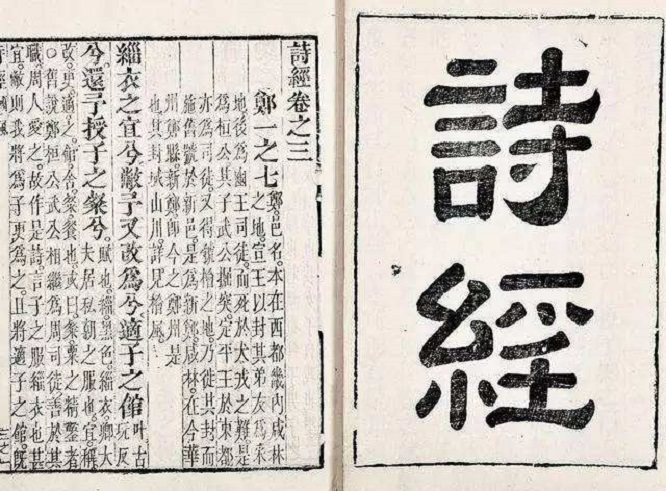 詩經
詩經卷之三
鄭一之七
鄭。邑名。本在西都畿內咸林
之地。宣王以封其弟友為采
地後為幽王司徒。而死於犬戎之難。是
為桓公。其子武公掘突。定平王於東都
亦為司徒。又得虢檜之地。乃徙其封。而
施舊號於新邑。是為新鄭。咸林。在今華
州鄭縣。新鄭即今之鄭州是
也其封域山川。詳見檜風。
緇衣之宜兮敝予又改為兮適子之館
叶古
玩反
兮還予授子之粲兮。
賦也。緇黑色。緇衣。卿大
夫居私朝之服也。宜稱
改。更。適之。館舍。粲餐也。或曰。粲粟之精鑿者
○舊說鄭桓公武公相繼為周司徒善於其
職。周人愛之。故作是詩。言子之服緇衣也甚
宜。敝則我將為子更為之。且將適子之館。既